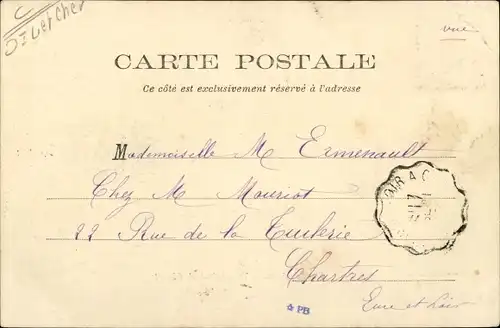 C
Loir et Cher
vue
CARTE POSTALE
Ce côté est exclusivement réservé à l'adresse
Mademoiselle M Ermenault
Chez M Mouriot
22 Rue de la Tuilerie
Chartres
Eure et Loir
PB